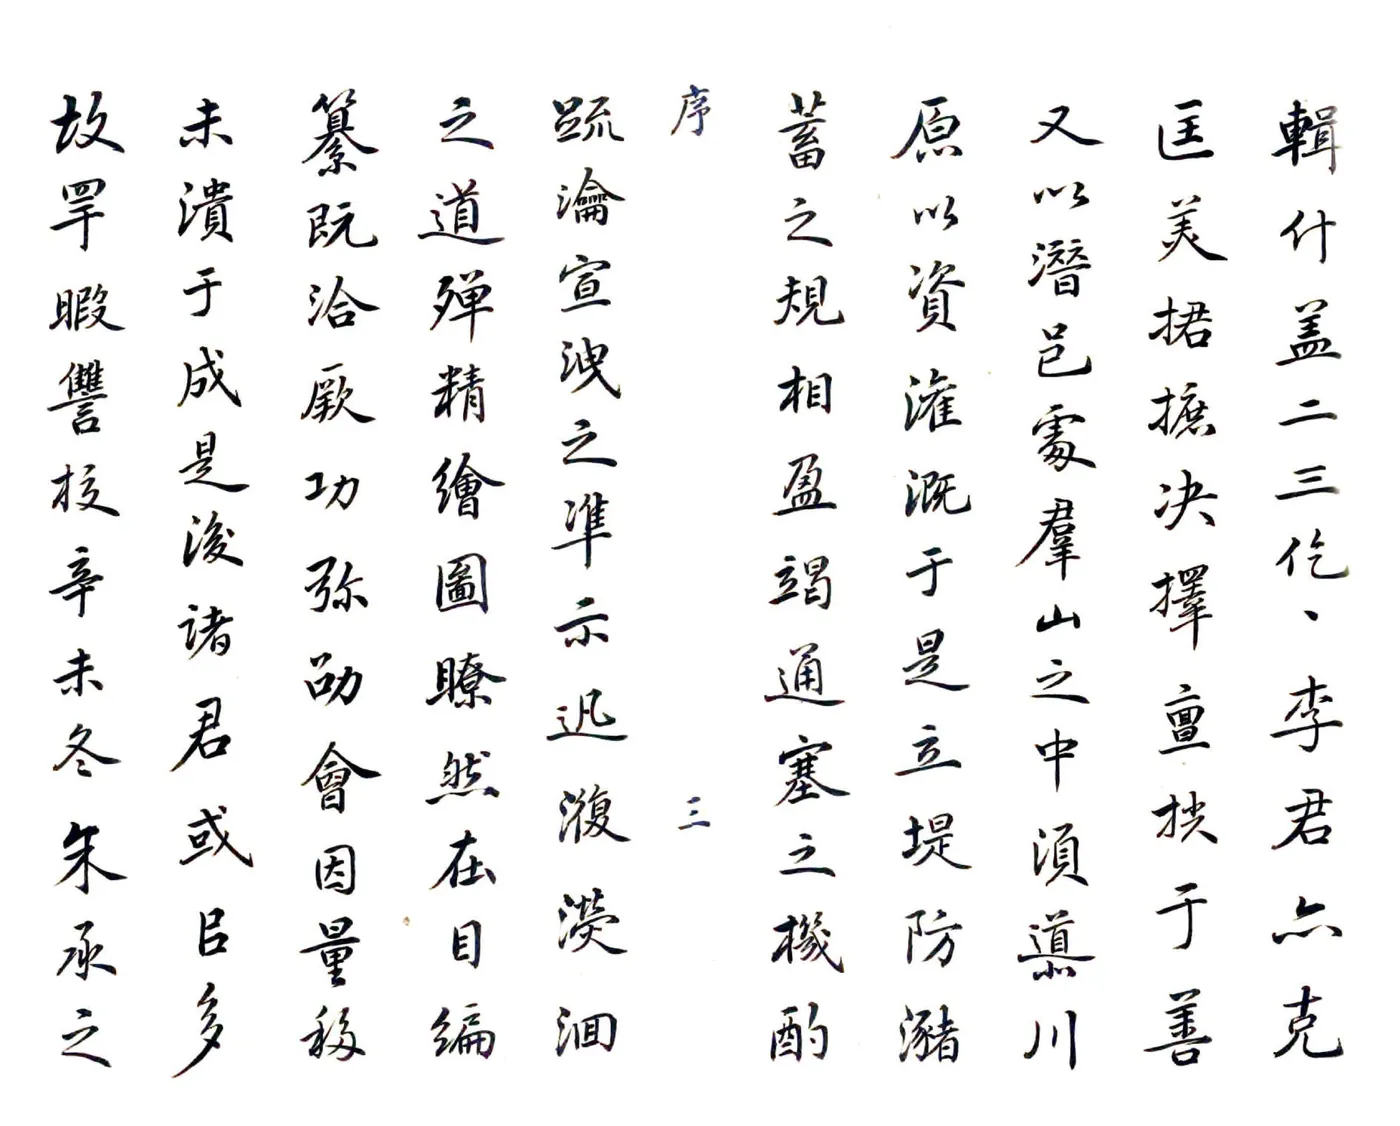 輯什盖二三仡、李君亦克
匡美捃摭决擇亶扶于善
又以潛邑處羣山之中須導川
原以資灌溉于是立堤防瀦
蓄之規相盈竭通塞之機酌
序 三
疏瀹宣洩之準示迅澓濙洄
之道殫精繪圖瞭然在目編
纂既洽厥功弥劭會因量移
未潰于成是後諸君或㠯多
故罕暇讐校辛未冬朱承之